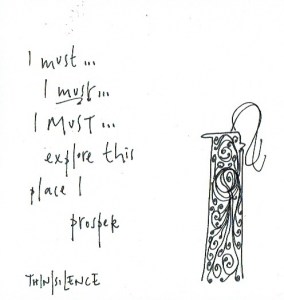 I must...
I must...
I MUST...
explore this
place I
prosper
THINSILENCE